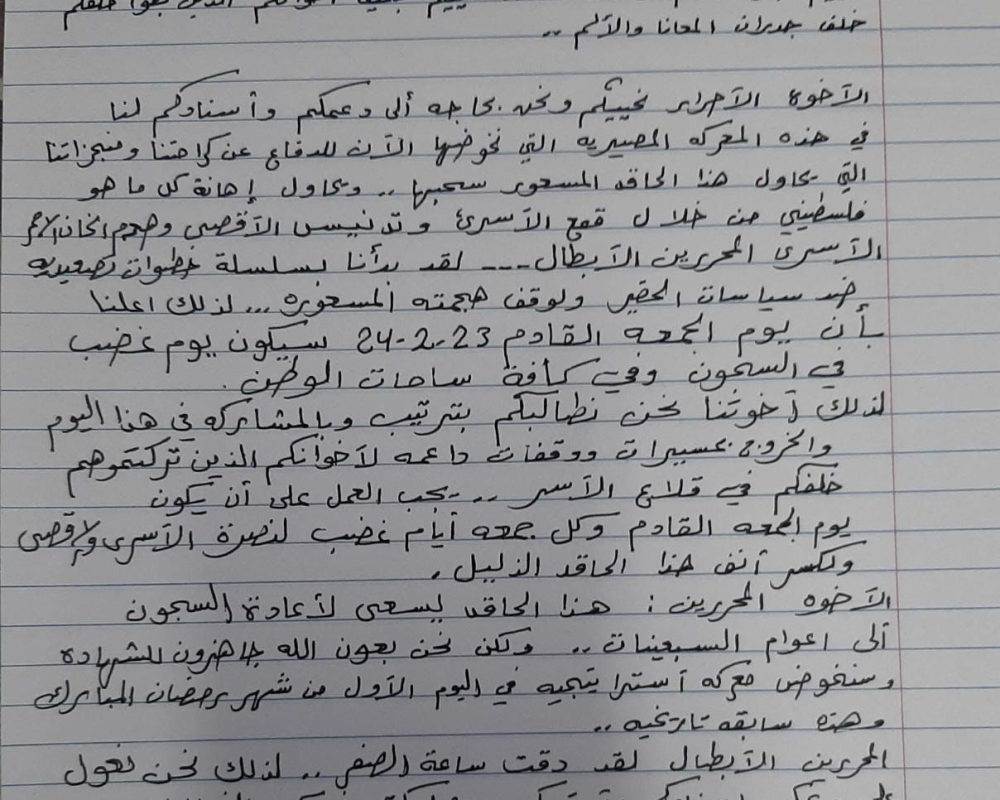 خلف جدران المعانا والآلم ..
الآخوة الآحرار نحييكم ونحن بحاجه ألى دعمكم وأسنادكم لنا
في هذه المعركه المصيريه التي نخوضها الآن للدفاع عن كرامتنا ومنجزاتنا
التي يحاول هذا الحاقد المسعور سحبها .. ويحاول إهانة كل ما هو
فلسطيني من خلال قمع الآسرى وتدنيس الآقصى وهدم
الآسرى المحررين الآبطال --- لقد بدأنا بسلسلة خطوات تصعيديه
ضد سياسات الحقير ولوقف هجمته المسعوره ... لذلك اعلنا
بأن يوم الجمعه القادم 24-2-23 سيكون يوم غضب
في السجون وفي كآفة ساحات الوطن .
لذلك أخوتنا نحن نطالبكم بترتيب وبالمشاركه في هذا اليوم
والخروج بمسيرات ووقفات داعمه لآخوانكم الذين تركتموهم
خلفكم في قلاع الآسر .. يجب العمل على أن يكون
يوم الجمعه القادم وكل جمعه أيام غضب لنصرة الآسرى والآقصى
ولكسر أنف هذا الحاقد الذليل .
الآخوه المحررين : هذا الحاقد يسعى لآعادة السجون
ألى اعوام السبعينات .. ولكن نحن بعون الله جاهزون للشهادة
وسنخوض معركه أستراتيجيه في اليوم الآول من شهر رمضان المبارك
وهذه سابقه تاريخيه ..
المحررين الآبطال لقد دقت ساعة الصفر .. لذلك نحن نقول